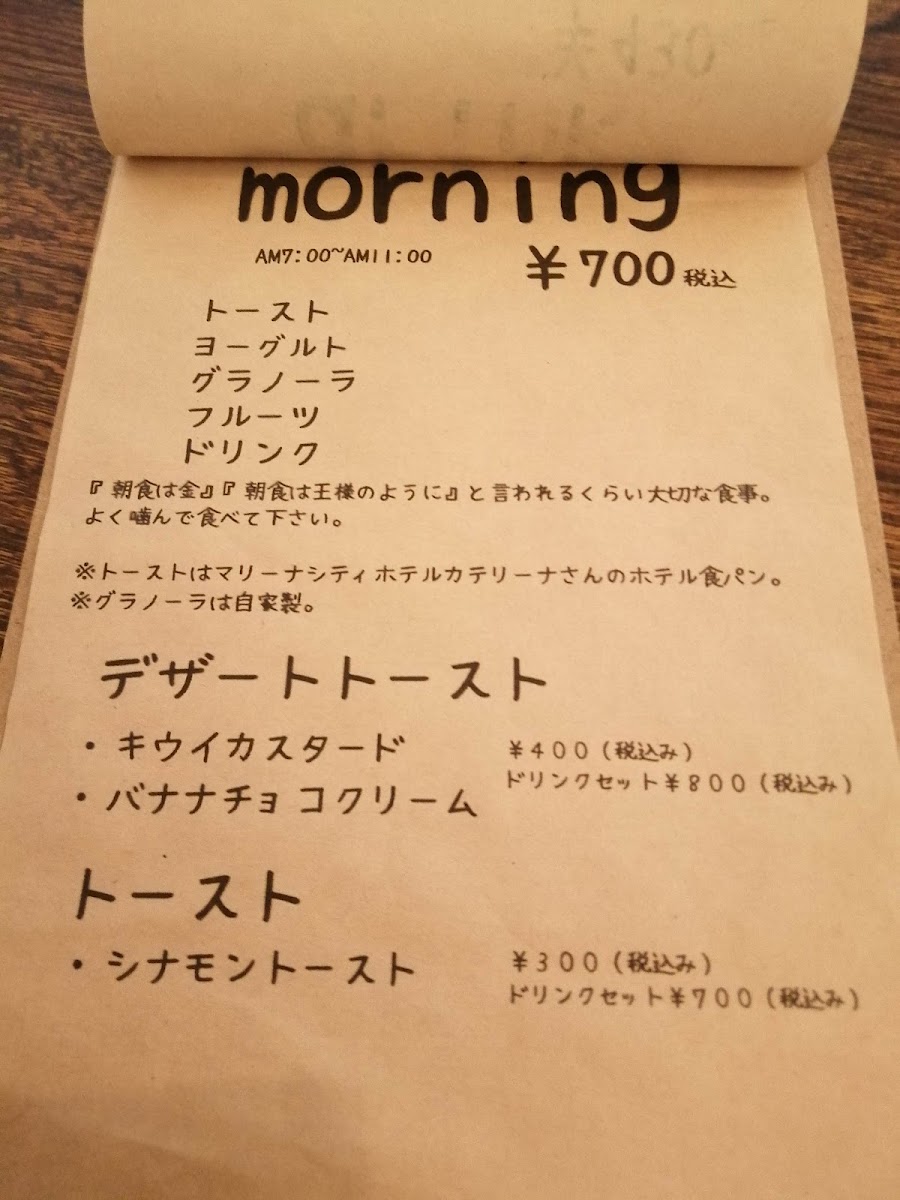 morning
AM7:00~AM11:00 ￥700 税込
トースト
ヨーグルト
グラノーラ
フルーツ
ドリンク
『朝食は金』『朝食は王様のように』と言われるくらい大切な食事。
よく噛んで食べて下さい。
※トーストはマリーナシティホテルカテリーナさんのホテル食パン。
※グラノーラは自家製。
デザートトースト
・キウイカスタード ￥400（税込み）
ドリンクセット￥800（税込み）
・バナナチョコクリーム
トースト
・シナモントースト ￥300（税込み）
ドリンクセット￥700（税込み）